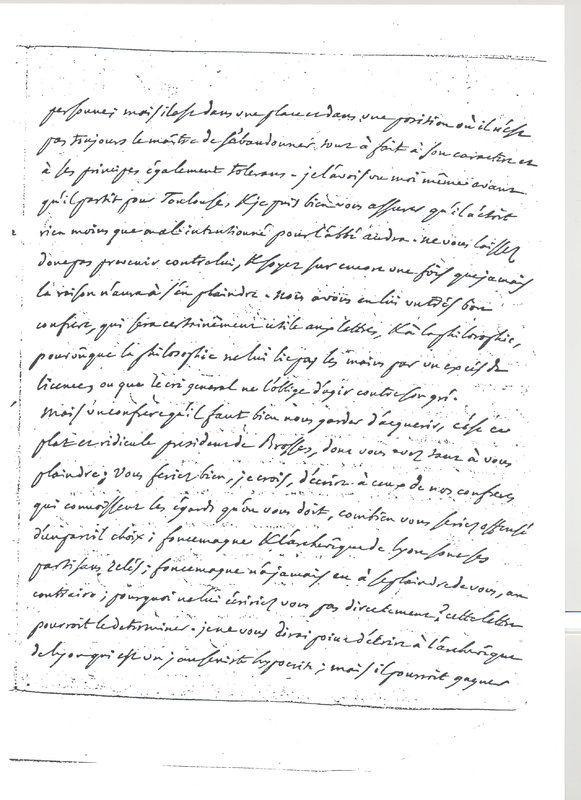 personne; mais il est dans une place et dans une position où il n'est
pas toujours le maître de s'abandonner tout à fait à son caractere et
à ses principes également tolerans - je l'avois vu moi même avant
qu'il partit pour Toulouse, & je puis bien vous assurer qu'il n'étoit
rien moins que mal intentionné pour l'abbé audra - ne vous laissez
donc pas prevenir contre lui, & soyez sur encore une fois que jamais
la raison n'aura à s'en plaindre - nous avons en lui un très bon
confrere, qui sera certainement utile aux lettres, & à la philosophie,
pourvu que la philosophie ne lui lie pas les mains par un excès de
licence, ou que le cri general ne l'oblige d'agir contre son gré -
Mais un confrère qu'il faut bien nous garder d'acquerir, c'est ce
plat et ridicule president de Brosses, dont vous avez tant à vous
plaindre; Vous feriez bien, je crois, d'écrire à ceux de nos confreres
qui connoissent les égards qu'on vous doit, combien vous seriez offensé
d'un pareil choix; foncemagne & l'archevêque de lyon sont ses
partisans zelés; foncemagne n'a jamais eu à se plaindre de vous, au
contraire; pourquoi ne lui écririez vous pas directement? cette lettre
pourroit le determiner - je ne vous dirai point d'écrire à l'archevêque
de lyon qui est un janseniste hypocrite; mais il pourroit gagner